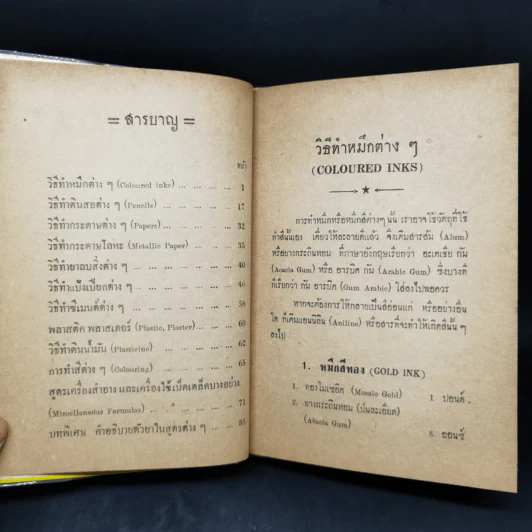 = สารบาญ =
หน้า
วิธีทำหมึกต่าง ๆ (Coloured inks) ... ... ... 1
วิธีทำดินสอต่าง ๆ (Pencils) ... ... ... 17
วิธีทำกระดาษต่าง ๆ (Papers) ... ... ... 32
วิธีทำกระดาษโลหะ (Metallic Paper) ... ... 35
วิธีทำยาลบสิ่งต่าง ๆ ... ... ... ... 40
วิธีทำแป้งเปียกต่าง ๆ ... ... ... ... 46
วิธีทำซีเมนต์ต่าง ๆ ... ... ... ... 56
พลาสติค พลาสเตอร์ (Plastic, Plaster) ... ... 60
วิธีทำดินน้ำมัน (Plassicine) ... ... ... 62
การทำสีต่าง ๆ (Colouring) ... ... ... 65
สูตรเครื่องสำอาง และเครื่องใช้เบ็ดเตล็ดบางอย่าง
(Miscellaneous Formulas) ... ... ... 71
บทพิเศษ คำอธิบายตัวยาในสูตรต่าง ๆ ... ... 85
วิธีทำหมึกต่าง ๆ
(COLOURED INKS)
การทำหมึกหรือหมึกสีต่างๆ นั้น เราอาจใช้วัตถุที่ใช้
ทำสีนั้นเอง เคี่ยวให้ละลายดีแล้ว จึงเติมสารส้ม (Alum)
หรือยางกระถินหอม ที่ภาษาอังกฤษเรียกว่า อะเคเชีย กัม
(Acacia Gum) หรือ อารบิค กัม (Arabic Gum) ซึ่งบางที
ก็เรียกว่า กัม อารบิค (Gum Arabic) ใส่ลงไปพอควร
หากจะต้องการให้กลายเป็นสีอ่อนแก่ หรืออย่างอื่น
ใด ก็เติมแอนนิลิน (Aniline) หรือสารที่จะทำให้เกิดสีนั้น ๆ
ลงไป
1. หมึกสีทอง (GOLD INK)
1. ทองโมเซอิค (Mosaic Gold) 1 ปอนด์
2. ยางกระถินหอม (ป่นละเอียด)
(Acacia Gum) 8 ออนซ์